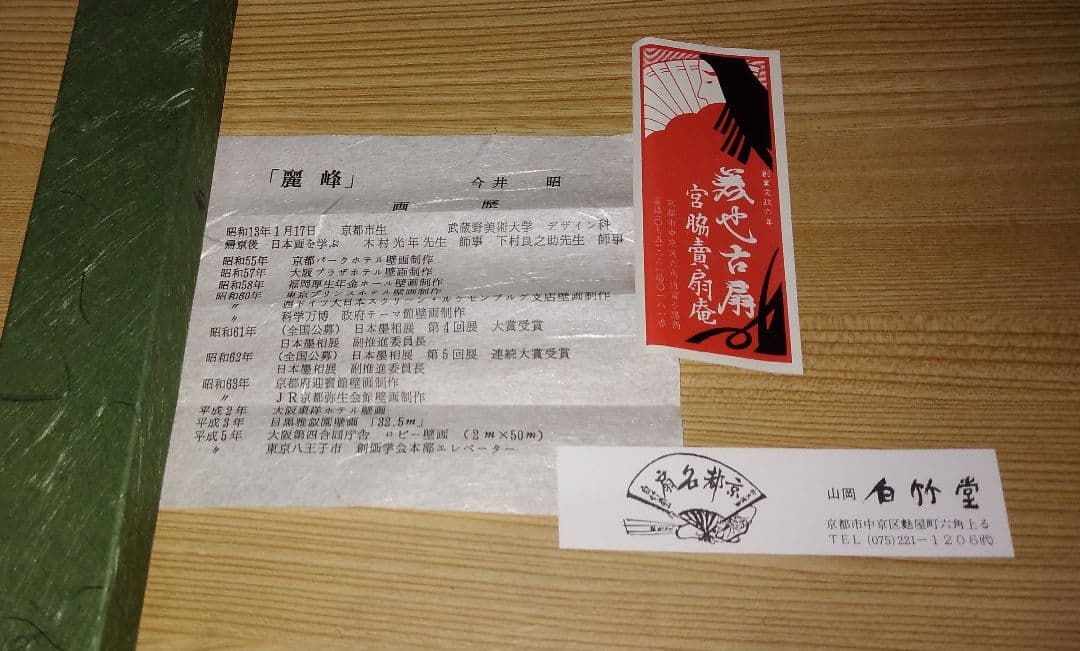 「麗峰」 今井 昭
画 歴
昭和13年1月17日 京都市生 武蔵野美術大学 デザイン科
帰京後 日本画を学ぶ 木村光年先生 師事 下村良之助先生 師事
昭和55年 京都パークホテル壁画制作
昭和57年 大阪プラザホテル壁画制作
昭和58年 福岡厚生年金ホール壁画制作
昭和60年 東京プリンスホテル壁画制作
〃 西ドイツ大日本スクリーン・ルクセンブルグ支店壁画制作
〃 科学万博 政府テーマ館壁画制作
昭和61年 (全国公募) 日本墨相展 第4回展 大賞受賞
日本墨相展 副推進委員長
昭和62年 (全国公募) 日本墨相展 第5回展 連続大賞受賞
日本墨相展 副推進委員長
昭和63年 京都府迎賓館壁画制作
〃 JR京都弥生会館壁画制作
平成2年 大阪東洋ホテル壁画
平成3年 目黒雅叙園壁画「32.5m」
平成5年 大阪第四合同庁舎 ロビー壁画 (2m×50m)
〃 東京八王子市 創価学会本部エレベーター
創業文政六年
美也古扇
宮脇賣扇庵
京都市中京区六角通富小路西
京名都扇
白竹堂
山岡 白竹堂
京都市中京区麩屋町六角上る
TEL (075)221-1206代